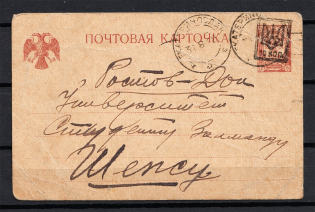 ПОЧТОВАЯ КАРТОЧКА
Ростов-Дон
Университет
Студенту Залманду
Шепсу